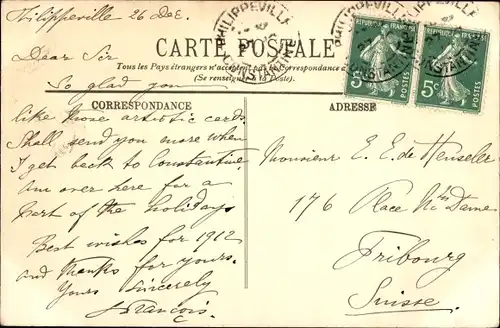 Philippeville 26 Dec.
PHILIPPEVILLE
CONSTANTINE
PHILIPPEVILLE
CONSTANTINE
REPUBLIQUE FRANÇAISE
5c POSTES
REPUBLIQUE FRANÇAISE
5c POSTES
CARTE POSTALE
Tous les Pays étrangers n'acceptent pas la Correspondance
(Se renseigner à la Poste).
CORRESPONDANCE
ADRESSE
Dear Sir
So glad you
like those artistic cards.
Shall send you more when
I get back to Constantine
am over here for a
part of the holidays
Best wishes for 1912
and thanks for yours.
Yours sincerely
Francois.
Monsieur E. E. de Henseler
176 Place Nre Dame
Fribourg
Suisse.